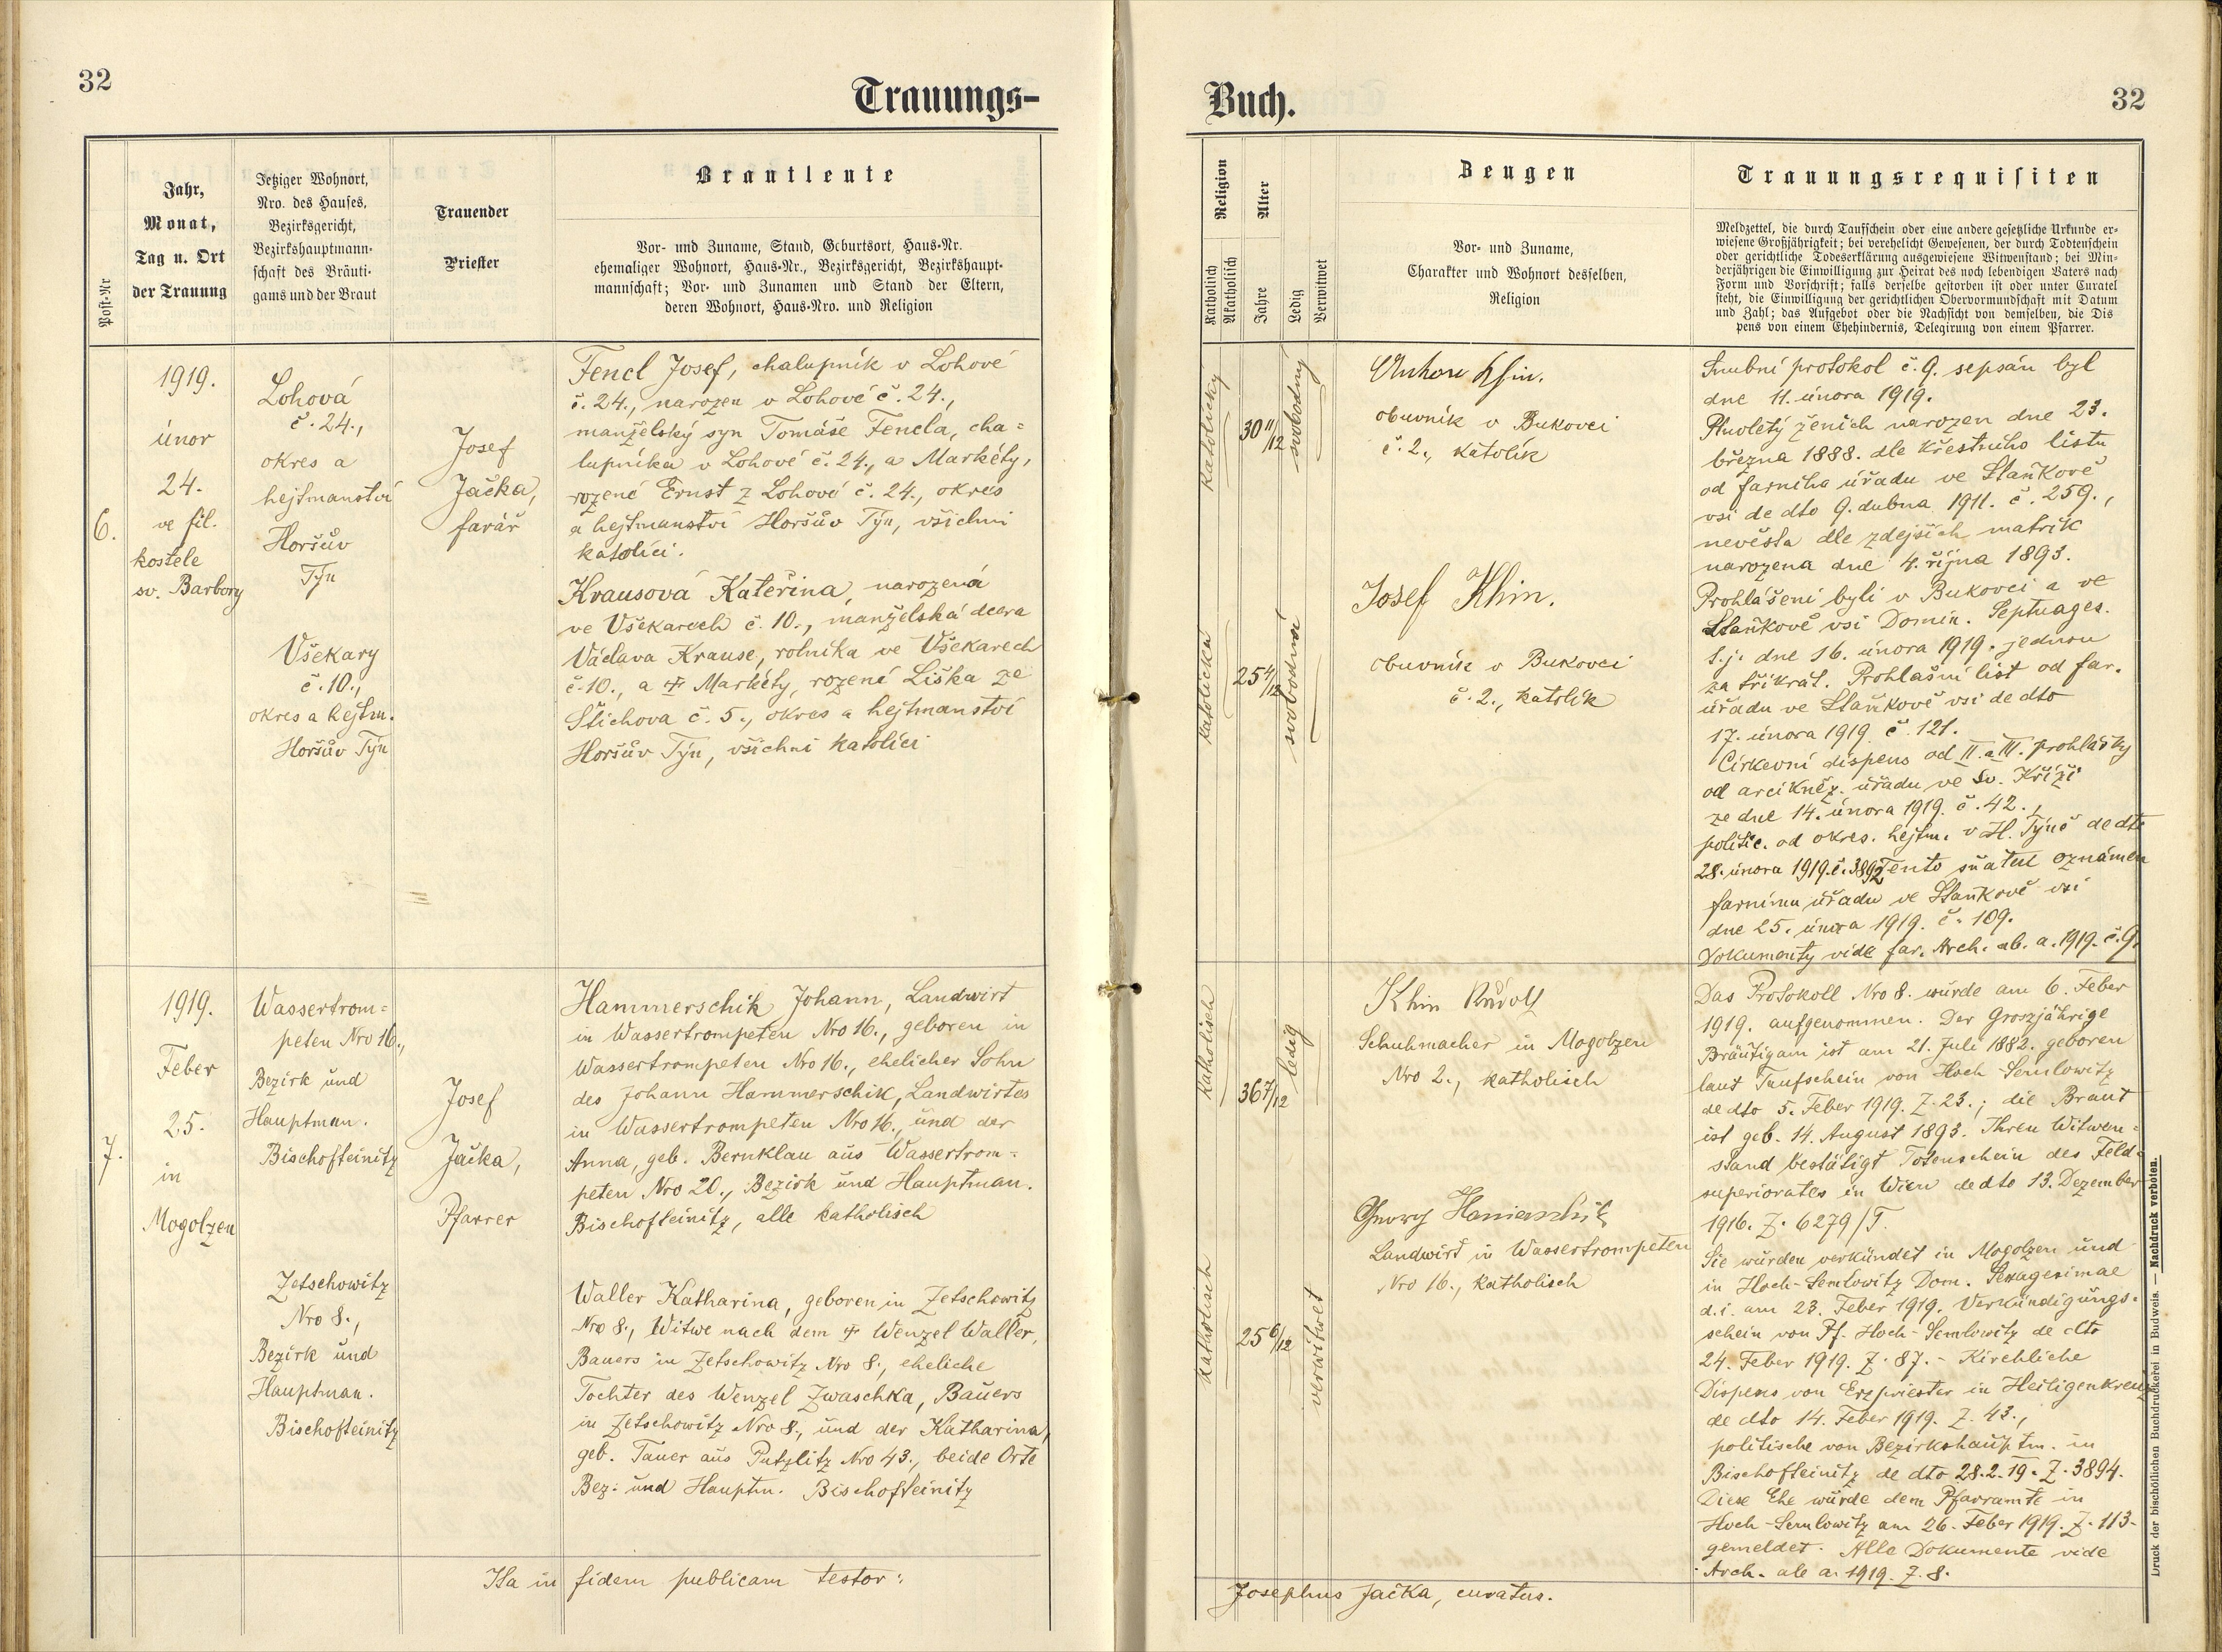 32
Trauungs-
Post-Nr
Jahr,
Monat,
Tag u. Ort
der Trauung
Jetziger Wohnort,
Nro. des Hauses,
Bezirksgericht,
Bezirkshauptmann-
schaft des Bräuti-
gams und der Braut
Trauender
Priester
Brautleute
Vor- und Zuname, Stand, Geburtsort, Haus-Nr.
ehemaliger Wohnort, Haus-Nr., Bezirksgericht, Bezirkshaupt-
mannschaft; Vor- und Zunamen und Stand der Eltern,
deren Wohnort, Haus-Nro. und Religion
6.
1919.
únor
24.
ve fil.
kostele
sv. Barbory
Lohová
č. 24.,
okres a
hejtmanství
Horšův
Týn
Všekary
č. 10.,
okres a hejtm.
Horšův Týn
Josef
Jačka,
farář
Fencl Josef, chalupník v Lohové
č. 24., narozen v Lohové č. 24.,
manželský syn Tomáše Fencla, cha=
lupníka v Lohové č. 24., a Markéty,
rozené Ernst z Lohové č. 24., okres
a hejtmanství Horšův Týn, všichni
katolíci.
Krausová Kateřina, narozená
ve Všekarech č. 10., manželská dcera
Václava Krause, rolníka ve Všekarech
č. 10., a † Markéty, rozené Liška ze
Štichova č. 5., okres a hejtmanství
Horšův Týn, všichni katolíci
7.
1919.
Feber
25.
in
Mogolzen
Wassertrom=
peten Nro 16.,
Bezirk und
Hauptman.
Bischofteinitz
Zetschowitz
Nro 8.,
Bezirk und
Hauptman.
Bischofteinitz
Josef
Jačka,
Pfarrer
Hammerschik Johann, Landwirt
in Wassertrompeten Nro 16., geboren in
Wassertrompeten Nro 16., ehelicher Sohn
des Johann Hammerschik, Landwirtes
in Wassertrompeten Nro 16., und der
Anna, geb. Bernklau aus Wassertrom=
peten Nro 20., Bezirk und Hauptman.
Bischofteinitz, alle katholisch
Waller Katharina, geboren in Zetschowitz
Nro 8., Witwe nach dem † Wenzel Waller,
Bauers in Zetschowitz Nro 8., eheliche
Tochter des Wenzel Zwaschka, Bauers
in Zetschowitz Nro 8., und der Katharina,
geb. Tauer aus Putzlitz Nro 43., beide Orte
Bez: und Hauptm. Bischofteinitz
Ita in fidem publicam testor:
Buch.
32
Religion
Katholisch
Akatholisch
Alter
Jahre
Ledig
Verwitwet
Zeugen
Vor- und Zuname,
Charakter und Wohnort desselben,
Religion
Trauungsrequisiten
Meldzettel, die durch Taufschein oder eine andere gesetzliche Urkunde er-
wiesene Großjährigkeit; bei verehelicht Gewesenen, der durch Todtenschein
oder gerichtliche Todeserklärung ausgewiesene Witwenstand; bei Min-
derjährigen die Einwilligung zur Heirat des noch lebendigen Vaters nach
Form und Vorschrift; falls derselbe gestorben ist oder unter Curatel
steht, die Einwilligung der gerichtlichen Obervormundschaft mit Datum
und Zahl; das Aufgebot oder die Nachsicht von demselben, die Dis
pens von einem Ehehindernis, Delegirung von einem Pfarrer.
katolický
30 11/12
svobodný
katolická
25 4/12
svobodná
Anton Khin.
obuvník v Bukovci
č. 2., katolík
Josef Khin.
obuvník v Bukovci
č. 2., katolík
Snubní protokol č. 9. sepsán byl
dne 11. února 1919.
Plnoletý ženich narozen dne 23.
března 1888. dle křestního listu
od farního úřadu ve Staňkově
vsi de dto 9. dubna 1911. č. 259.,
nevěsta dle zdejších matrik
narozena dne 4. října 1893.
Prohlášeni byli v Bukovci a ve
Staňkově vsi Domin. Septuages.
t. j. dne 16. února 1919. jednou
za třikrát. Prohlašní list od far.
úřadu ve Staňkově vsi de dto
17. února 1919 č. 121.
Církevní dispens od II. a III. prohlášky
od arcikněz. úřadu ve Sv. Kříži
ze dne 14. února 1919. č. 42.,
politic. od okres. hejtm. v H. Týně de dto
28. února 1919. č. 3892 Tento sňatek oznámen
farnímu úřadu ve Staňkově vsi
dne 25. února 1919. č. 109.
Dokumenty vide far. Arch. ab. a. 1919. č. 9.
katholisch
36 7/12
ledig
katholisch
25 6/12
verwitwet
Khin Rudolf
Schuhmacher in Mogolzen
Nro 2., katholisch
Georg
Landwirt in Wassertrompeten
Nro 16., katholisch
Das Protokoll Nro 8. wurde am 6. Feber
1919. aufgenommen. Der Groszjährige
Bräutigam ist am 21. Juli 1882. geboren
laut Taufschein von Hoch-Semlowitz
de dto 5. Feber 1919. Z. 23.; die Braut
ist geb. 14. August 1893. Ihren Witwen=
stand bestätigt Totenschein des Feld=
superiorates in Wien de dto 13. Dezember
1916. Z. 6279/T.
Sie wurden verkündet in Mogolzen und
in Hoch-Semlowitz Dom. Sexagesimae
d. i. am 23. Feber 1919. Verkündigungs=
schein von Pf. Hoch-Semlowitz de dto
24. Feber 1919. Z. 87. - Kirchliche
Dispens von Erzpriester in Heiligenkreuz
de dto 14. Feber 1919. Z. 43.,
politische von Bezirkshauptm. in
Bischofteinitz de dto 28.2.19. Z. 3894.
Diese Ehe wurde dem Pfarramte in
Hoch-Semlowitz am 26. Feber 1919. Z. 113.
gemeldet. Alle Dokumente vide
Arch. ab a. 1919. Z. 8.
Josephus Jačka, curatus.
Druck der bischöflichen Buchdruckerei in Budweis. — Nachdruck verboten.